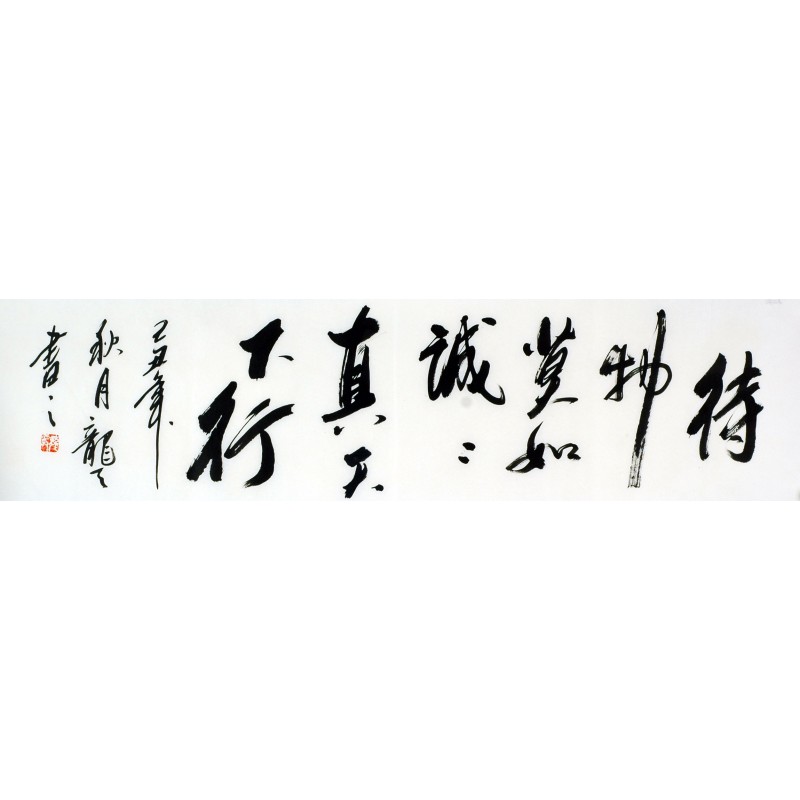 待
物
莫如
誠〻
真天
下行
己丑年
秋月龍
書之